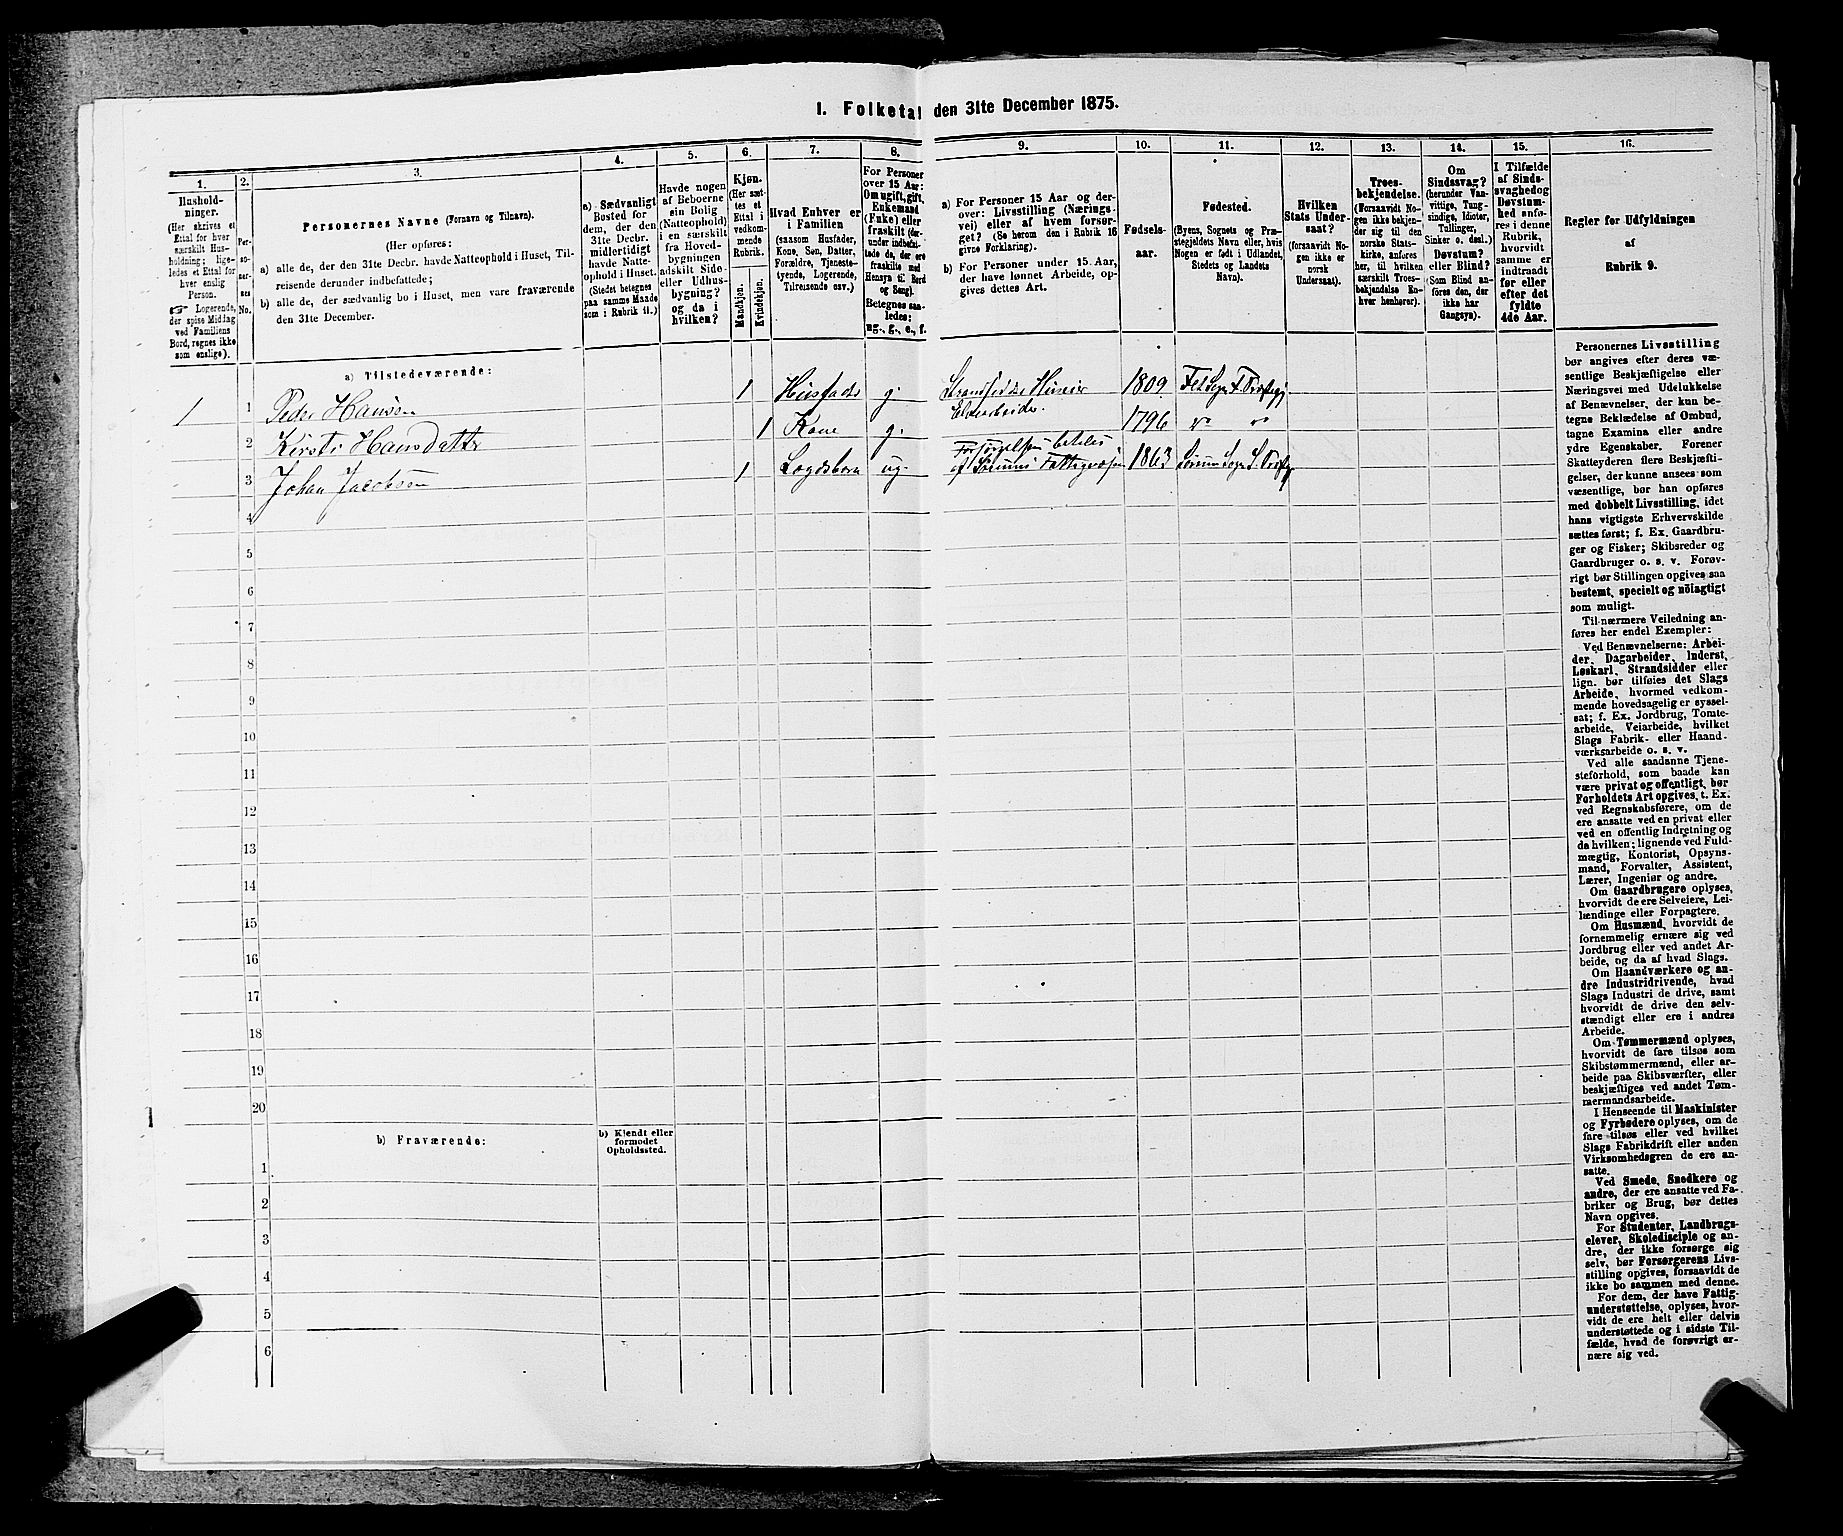 I. Folketal den 31te December 1875.
1.
Hushold-
ninger.
(Her skrives et
Ettal for hver
særskilt Hus-
holdning; lige-
ledes et Ettal for
hver enslig
Person.
☞ Logerende,
der spise Middag
ved Familiens
Bord, regnes ikke
som enslige).
2.
Per-
so-
ner-
nes
No.
3.
Personernes Navne (Fornavn og Tilnavn).
(Her opføres:
a) alle de, der den 31te Decbr. havde Natteophold i Huset, Til-
reisende derunder indbefattede;
b) alle de, der sædvanlig bo i Huset, men vare fraværende
den 31te December.
4.
a) Sædvanligt
Bosted for
dem, der den
31te Decbr.
midlertidigt
havde Natte-
ophold i Huset.
(Stedet betegnes
paa samme Maade
som i Rubrik 11.)
5.
Havde nogen
af Beboerne
sin Bolig
(Natteophold)
i en særskilt
fra Hoved-
bygningen
adskilt Side-
eller Udhus-
bygning?
og da i
hvilken?
6.
Kjøn.
(Her sæt-
tes et
Ettal i
vedkom-
mende
Rubrik.
Mandkjøn.
Kvindekjøn.
7.
Hvad Enhver er
i Familien
(saasom Husfader,
Kone, Søn, Datter,
Forældre, Tjeneste-
tyende, Logerende,
Tilreisende osv.)
8.
For Personer
over 15 Aar:
Om ugift, gift,
Enkemand
(Enke) eller
fraskilt (der-
under indbefat-
tede de, der ere
fraskilte med
Hensyn til Bord
og Seng).
Betegnes saa-
ledes:
ug., g., e., f.
9.
a) For Personer 15 Aar og der-
over: Livsstilling (Nærings-
vei) eller af hvem forsør-
get? (Se herom den i Rubrik 16
givne Forklaring).
b) For Personer under 15 Aar,
der have lønnet Arbeide, op-
gives dettes Art.
10.
Fødsels-
aar.
11.
Fødested.
(Byens, Sognets og Præ-
stegjeldets Navn eller, hvis
Nogen er født i Udlandet,
Stedets og Landets
Navn).
12.
Hvilken
Stats Under-
saat?
(forsaavidt No-
gen ikke er
norsk
Undersaat).
13.
Troes-
bekjendelse.
(Forsaavidt No-
gen ikke bekjen-
der sig til den
norske Stats-
kirke, anføres
her, til hvilken
særskilt Troes-
bekjendelse En-
hver henhører).
14.
Om
Sindssvag?
(herunder Van-
vittige, Tung-
sindige, Idioter,
Tullinger,
Sinker o. desl.)
Døvstum?
eller Blind?
(Som Blind an-
føres den, der
ikke har
Gangsyn).
15.
I Tilfælde
af Sinds-
svaghed og
Døvstum-
hed anfø-
res i denne
Rubrik,
hvorvidt
samme er
indtraadt
før eller
efter det
fyldte
4de Aar.
16.
Regler for Udfyldningen
af
Rubrik 9.
a) Tilstedeværende:
1 1 Peder Hansen 1 Husfader g. 1809
2 Kirsti Hansdatter 1 Kone g. 1796 " "
3 Johan Jacobsen 1 Lægdsbarn ug. 1863
4
5
6
7
8
9
10
11
12
13
14
15
16
17
18
19
20
b) Fraværende:
b) Kjendt eller
formodet
Opholdssted.
1
2
3
4
5
6
Personernes Livsstilling
bør angives efter deres væ-
sentlige Beskjæftigelse eller
Næringsvei med Udelukkelse
af Benævnelser, der kun be-
tegne Beklædelse af Ombud,
tagne Examina eller andre
ydre Egenskaber. Forener
Skatteyderen flere Beskjæfti-
gelser, der kunne ansees som
væsentlige, bør han opføres
med dobbelt Livsstilling, idet
hans vigtigste Erhvervskilde
sættes først; f. Ex. Gaardbru-
ger og Fisker; Skibsreder og
Gaardbruger o. s. v. Forøv-
rigt bør Stillingen opgives saa
bestemt, specielt og nöiagtigt
som muligt.
Til nærmere Veiledning an-
føres her endel Exempler:
Ved Benævnelserne: Arbei-
der, Dagarbeider, Inderst,
Løskarl, Strandsidder eller
lign. bør tilføies det Slags
Arbeide, hvormed vedkom-
mende hovedsagelig er syssel-
sat; f. Ex. Jordbrug, Tomte-
arbeide, Veiarbeide, hvilket
Slags Fabrik- eller Haand-
værksarbeide o. s. v.
Ved alle saadanne Tjene-
steforhold, som baade kan
være privat og offentligt, bør
Forholdets Art opgives, t. Ex.
ved Regnskabsførere, om de
ere ansatte ved en privat eller
ved en offentlig Indretning og
da hvilken; lignende ved Fuld-
mægtig, Kontorist, Opsyns-
mand, Forvalter, Assistent,
Lærer, Ingeniør og andre.
Om Gaardbrugere oplyses,
hvorvidt de ere Selveiere, Lei-
lændinge eller Forpagtere.
Om Husmænd, hvorvidt de
fornemmelig ernære sig ved
Jordbrug eller ved andet Ar-
beide, og da af hvad Slags.
Om Haandværkere og an-
dre Industridrivende, hvad
Slags Industri de drive, samt
hvorvidt de drive den selv-
stændigt eller ere i andres
Arbeide.
Om Tømmermænd oplyses,
hvorvidt de fare tilsøs som
Skibstømmermænd, eller ar-
beide paa Skibsværfter, eller
beskjæftiges ved andet Tøm-
mermandsarbeide.
I Henseende til Maskinister
og Fyrbødere oplyses, om de
fare tilsøs eller ved hvilket
Slags Fabrikdrift eller anden
Virksomhedsgren de ere an-
satte.
Ved Smede, Snedkere og
andre, der ere ansatte ved Fa-
briker og Brug, bør dettes
Navn opgives.
For Studenter, Landbrugs-
elever, Skoledisciple og an-
dre, der ikke forsørge sig
selv, bør Forsørgerens Livs-
stilling opgives, forsaavidt de
ikke bo sammen med denne.
For dem, der have Fattig-
understøttelse, oplyses, hvor-
vidt de ere helt eller delvis
understøttede og i sidste Til-
fælde, hvad de forøvrigt er-
nære sig ved.